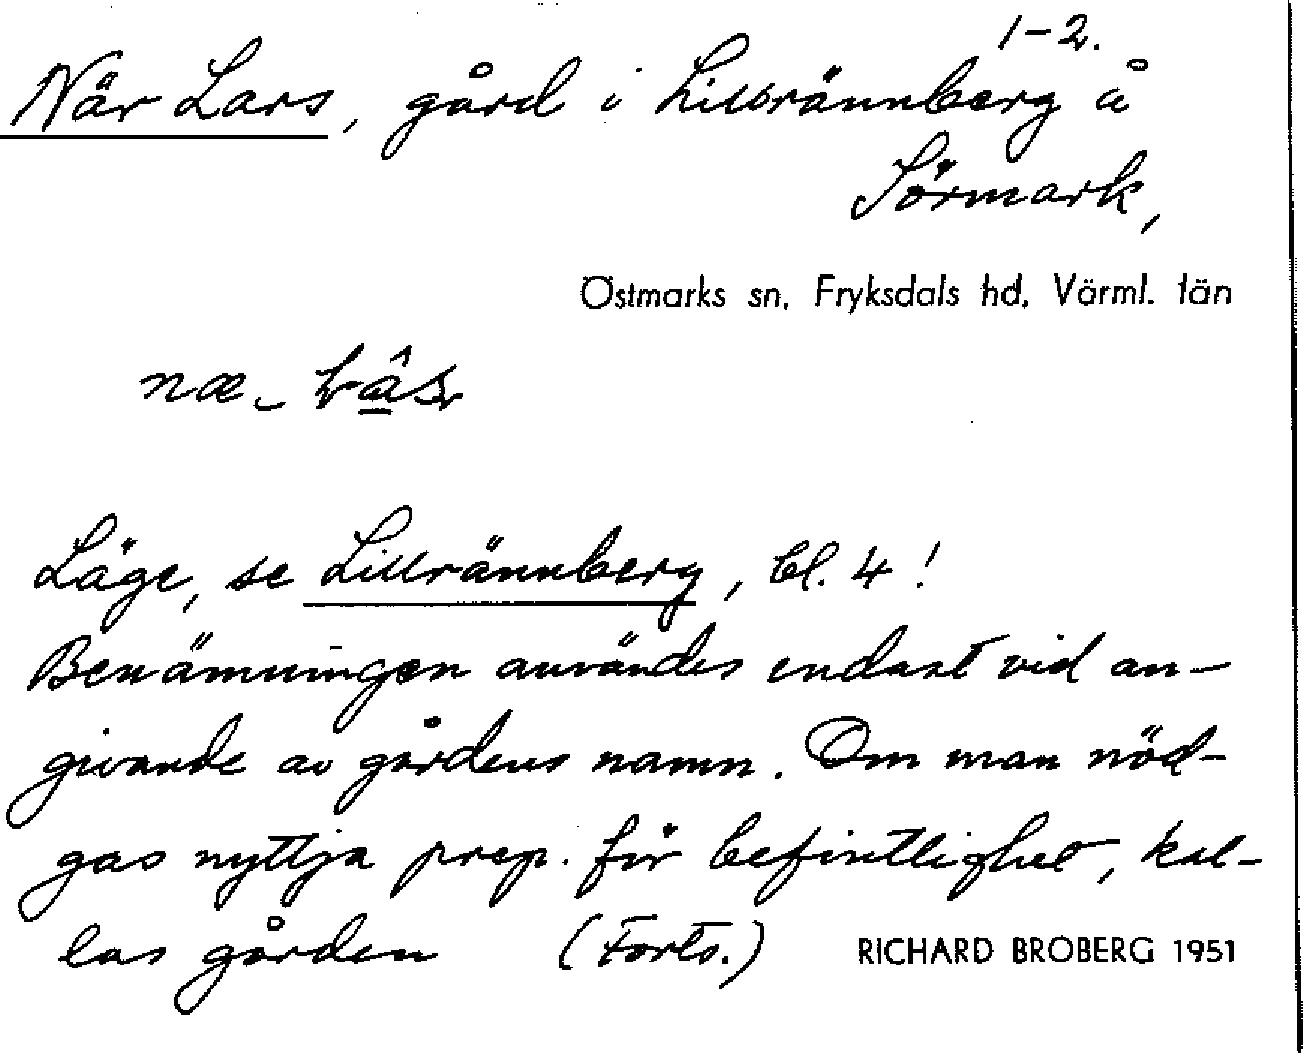 1-2.
När Lars, gård i Lillrännberg å
Sörmark,
Östmarks sn, Fryksdals hd, Värml. län
Läge, se Lillrännberg, bl. 4!
Benämningen användes endast vid an-
givande av gårdens namn. Om man nöd-
gas nyttja prep. för befintlighet, kal-
las gården (Forts.) RICHARD BROBERG 1951